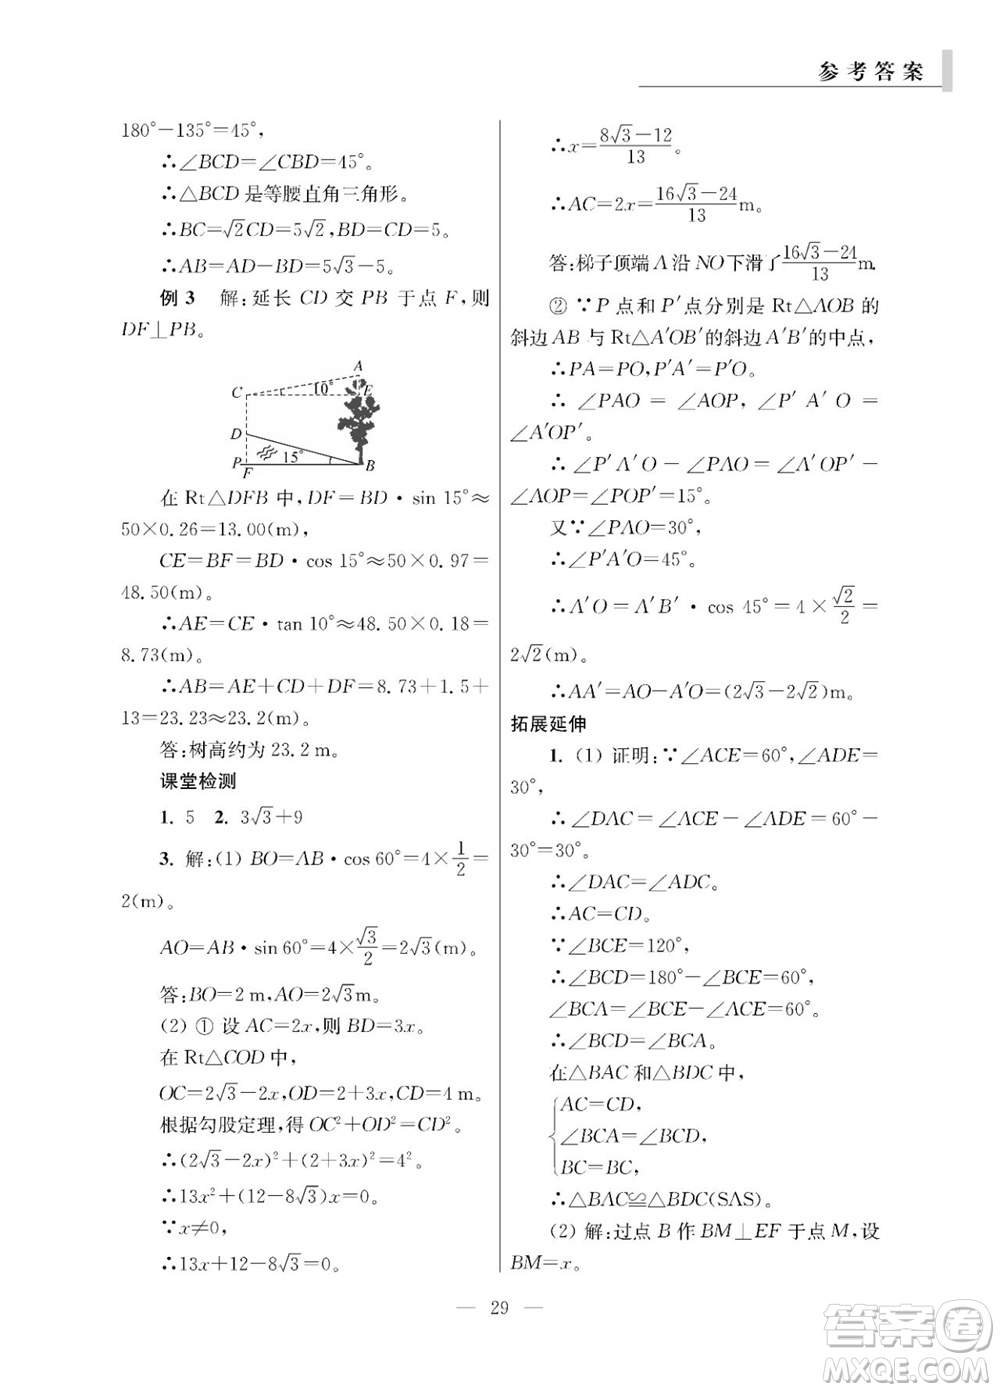 参考答案
180°－135°＝45°，
∴∠BCD＝∠CBD＝45°。
∴△BCD是等腰直角三角形。
∴BC＝√2CD＝5√2，BD＝CD＝5。
∴AB＝AD－BD＝5√3－5。
例 3　解：延长 CD 交 PB 于点 F，则
DF⊥PB。
A
C 10° E
D
15°
P F B
在 Rt△DFB 中，DF＝BD・sin 15°≈
50×0.26＝13.00(m)，
CE＝BF＝BD・cos 15°≈50×0.97＝
48.50(m)。
∴AE＝CE・tan 10°≈48.50×0.18＝
8.73(m)。
∴AB＝AE＋CD＋DF＝8.73＋1.5＋
13＝23.23≈23.2(m)。
答：树高约为 23.2 m。
课堂检测
1. 5　2. 3√3＋9
3. 解：(1) BO＝AB・cos 60°＝4×1/2＝
2(m)。
AO＝AB・sin 60°＝4×√3/2＝2√3(m)。
答：BO＝2 m，AO＝2√3 m。
(2) ① 设 AC＝2x，则 BD＝3x。
在 Rt△COD 中，
OC＝2√3－2x，OD＝2＋3x，CD＝4 m。
根据勾股定理，得 OC²＋OD²＝CD²。
∴(2√3－2x)²＋(2＋3x)²＝4²。
∴13x²＋(12－8√3)x＝0。
∵x≠0，
∴13x＋12－8√3＝0。
∴x＝(8√3－12)/13。
∴AC＝2x＝(16√3－24)/13 m。
答：梯子顶端 A 沿 NO 下滑了(16√3－24)/13 m.
② ∵P 点和 P′点分别是 Rt△AOB 的
斜边 AB 与 Rt△A′OB′的斜边 A′B′的中点，
∴PA＝PO，P′A′＝P′O。
∴∠PAO＝∠AOP，∠P′A′O＝
∠A′OP′。
∴∠P′A′O－∠PAO＝∠A′OP′－
∠AOP＝∠POP′＝15°。
又∵∠PAO＝30°，
∴∠P′A′O＝45°。
∴A′O＝A′B′・cos 45°＝4×√2/2＝
2√2(m)。
∴AA′＝AO－A′O＝(2√3－2√2)m。
拓展延伸
1. (1) 证明：∵∠ACE＝60°，∠ADE＝
30°，
∴∠DAC＝∠ACE－∠ADE＝60°－
30°＝30°。
∴∠DAC＝∠ADC。
∴AC＝CD。
∵∠BCE＝120°，
∴∠BCD＝180°－∠BCE＝60°，
∠BCA＝∠BCE－∠ACE＝60°。
∴∠BCD＝∠BCA。
在△BAC 和△BDC 中，
AC＝CD，
∠BCA＝∠BCD，
BC＝BC，
∴△BAC≌△BDC(SAS)。
(2) 解：过点 B 作 BM⊥EF 于点 M，设
BM＝x。
29
答案圈
MXQE.COM